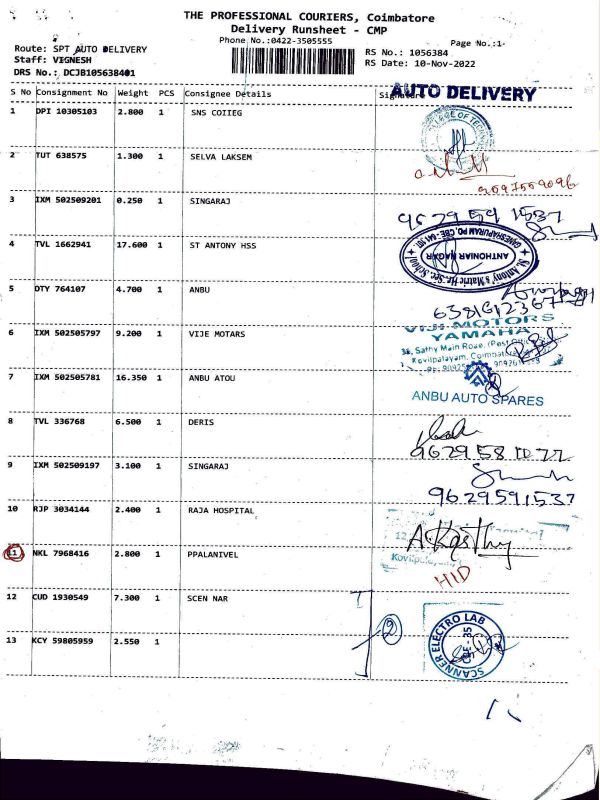 THE PROFESSIONAL COURIERS, Coimbatore
Delivery Runsheet - CMP
Phone No.:0422-3505555
Page No.:1
Route: SPT AUTO DELIVERY
Staff: VIGNESH
DRS No.: DCJB105638401
RS No.: 1056384
RS Date: 10-Nov-2022
S No Consignment No Weight PCS Consignee Details
AUTO DELIVERY
1 DPI 10305103 2.800 1 SNS COIIEG
2 TUT 638575 1.300 1 SELVA LAKSEM
9597559096
3 IXM 502509201 0.250 1 SINGARAJ
9629591537
4 TVL 1662941 17.600 1 ST ANTONY HSS
St. Antony's Matric Hr. Sec. School
ANTHONIAR NAGAR
GANESHAPURAM PO, CBE - 641 107
5 DTY 764107 4.700 1 ANBU
6 IXM 502505797 9.200 1 VIJE MOTARS
VIJI MOTORS
YAMAHA
Sathy Main Road, (Post
Kovilpalayam, Coimbatore
7 IXM 502505781 16.350 1 ANBU ATOU
ANBU AUTO SPARES
8 TVL 336768 6.500 1 DERIS
9 IXM 502509197 3.100 1 SINGARAJ
9629591537
10 RJP 3034144 2.400 1 RAJA HOSPITAL
A.Karthy
11 NKL 7968416 2.800 1 PPALANIVEL
HID
12 CUD 1930549 7.300 1 SCEN NAR
2
SCANNER ELECTRO LAB
13 KCY 59805959 2.550 1